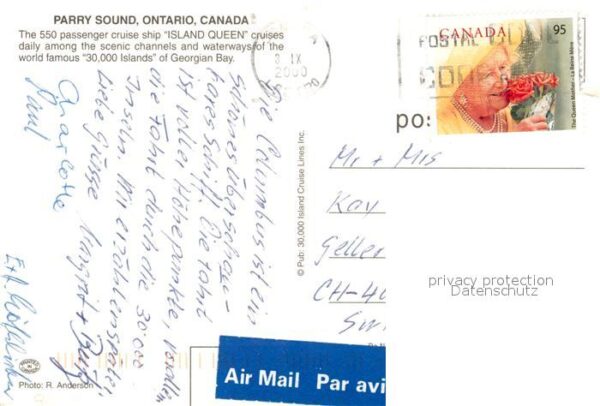 PARRY SOUND, ONTARIO, CANADA
The 550 passenger cruise ship "ISLAND QUEEN" cruises
daily among the scenic channels and waterways of the
world famous "30,000 Islands" of Georgian Bay.
Die Columbus ist ein
schönes überschau-
bares Schiff. Die Fahrt
ist voller Höhepunkte, vor allem
die Fahrt durch die 30'000
Inseln. Wir erzählen später.
Liebe Grüsse
Charlotte
Paul
© Pub: 30,000 Island Cruise Lines Inc.
Photo: R. Anderson
IX
2000
POSTAL CODE
CODE
CANADA
95
The Queen Mother - La Reine Mère
pos
Mr + Mrs
Kay
Geller
CH-40
privacy protection
Datenschutz
Air Mail Par avi